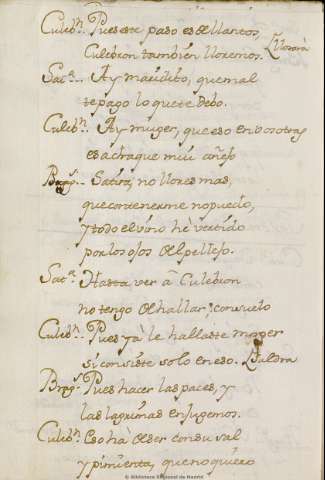 Culebn.. Pues este paso es de llantos,
Culebron tambien lloremos. Lloran
Sata.. Ay maridito, que mal
te pago lo que te debo.
Culebn.. Ay muger, que eso en vosotras
es achaque mui añejo
Brasi.. Satira, no llores mas,
que contenerme no puedo,
y todo el vino hè vertido
por los ojos del pellejo.
Sata.. Hasta ver â Culebron
no tengo de hallar consuelo
Culebn.. Pues yà le hallaste muger
si consiste solo en eso.
Pues hacer las paces, y
las lagrimas enjugemos.
Culebn. Eso hà de ser con su sal
y pimienta, que no quiero
© Biblioteca Regional de Madrid